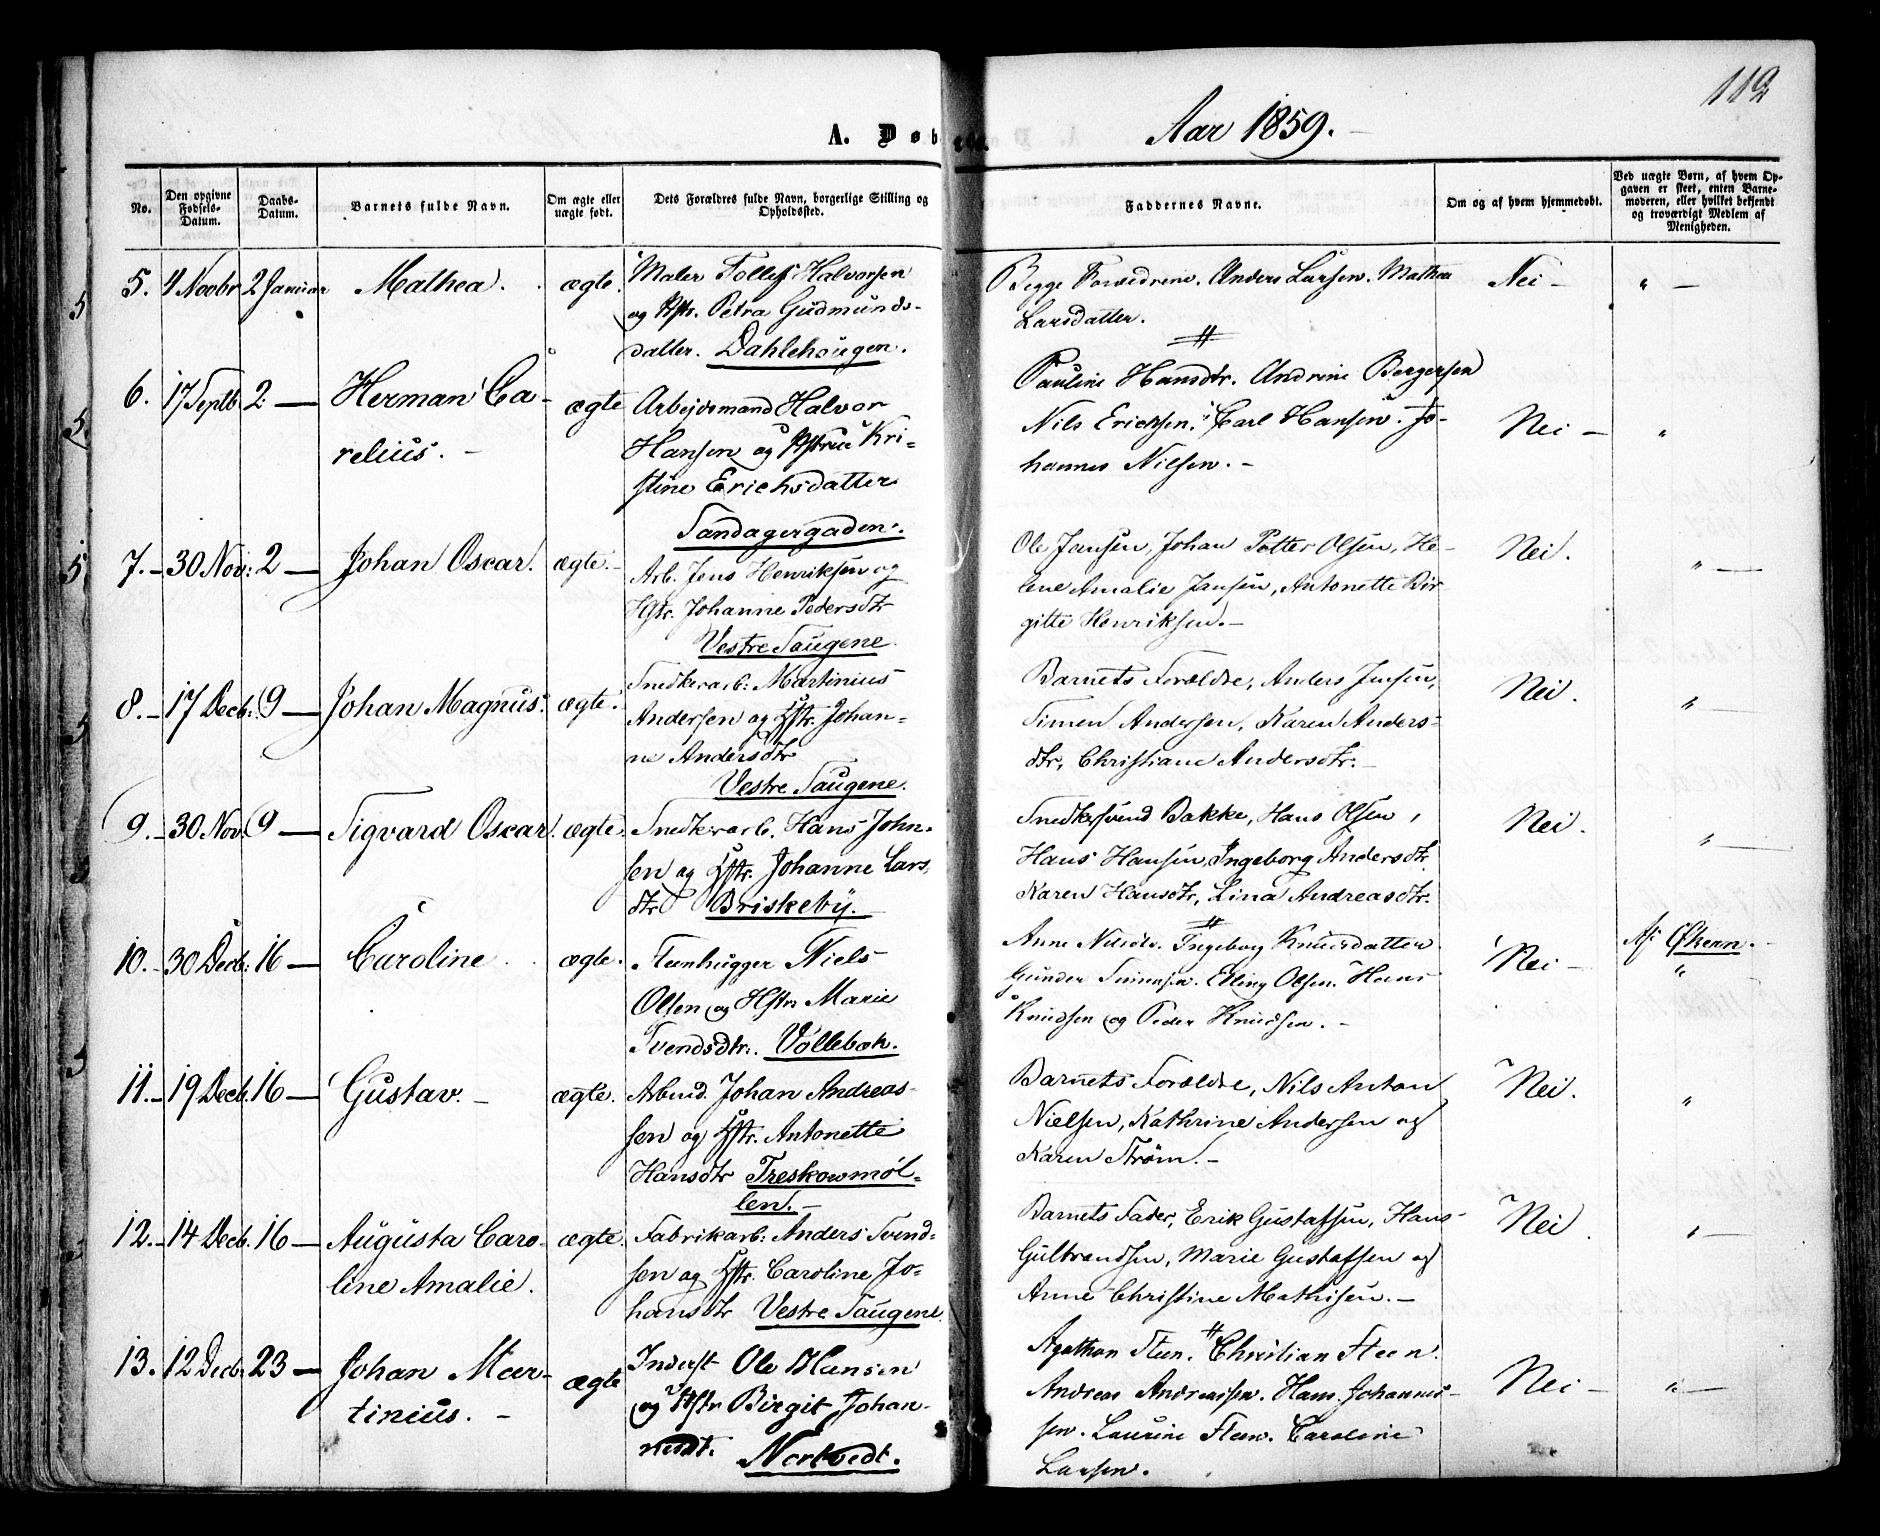 112
A. Døbte.
Aar 1859.
No.
Den opgivne Fødsels-Datum.
Daabs-Datum.
Barnets fulde Navn.
Om ægte eller uægte født.
Dets Forældres fulde Navn, borgerlige Stilling og Opholdssted.
Faddernes Navne.
Om og af hvem hjemmedøbt.
Ved uægte Børn, af hvem Opgaven er skeet, enten Barnemoderen, eller hvilket bekjendt og troværdigt Medlem af Menigheden.
5. 4 Novbr 2 Januar Mathea. ægte.
Maler Tollef Halvorsen
og Hstr. Petra Gudmunds-
datter. Dahlehougen.
Begge Forældrene. Anders Larsen. Mathea
Larsdatter.
Nei — " —
6. 17 Septb 2 — Herman Ca-
relius. — ægte
Arbeidsmand Halvor
Hansen og Hstrue Kri-
stine Erichsdatter
Sandagergaden.
Pauline Hansdtr. Andrine Bergersen
Nils Erichsen. Carl Hansen. Jo-
hannes Nilsen. —
Nei — "
7. — 30 Nov: 2 — Johan Oscar. ægte. —
Arb. Jens Henriksen og
Hstr. Johanne Pedersdtr
Vestre Saugene.
Ole Jansen, Johan Petter Olsen, He-
lene Amalie Jansen, Antonette Bir
gitte Henriksen. —
Nei. " —
8. — 17 Decb: 9 — Johan Magnus. ægte.
Snedkerarb: Martinius
Andersen og Hstr. Johan-
ne Andersdtr
Vestre Saugene.
Barnets Forældre, Anders Jensen,
Simen Andersen, Karen Anders-
dtr, Christiane Andersdtr. —
Nei. " —
9. — 30 Nov. 9 — Sigvard Oscar. ægte.
Snedkerarb. Hans John-
sen og Hstr. Johanne Lars-
dtr Briskeby.
Snedkersvend Bakke, Hans Olsen,
Hans Hansen, Ingeborg Andersdtr.
Karen Hansdtr, Lina Andreasdtr.
Nei. " —
10. — 30 Decb: 16 — Caroline. ægte.
Steenhugger Niels
Olsen og Hstr. Marie
Svendsdtr. Vollebæk.
Anne Nilsdtr. Ingeborg Knudsdatter.
Gunder Simensen. Elling Olsen. Hans
Knudsen og Peder Knudsen. —
Nei — Af Økern. —
"
11. — 19 Decb. 16 — Gustav. — ægte.
Arbmd. Johan Andreas-
sen og Hstr. Antonette
Hansdtr Treskowmøl-
len. —
Barnets Forældre, Nils Anton
Nielsen, Kathrine Andersen og
Karen Strøm. —
Nei. "
12. — 14 Decb. 16 — Augusta Caro-
line Amalie. ægte.
Fabrikarb: Anders Svend-
sen og Hstr. Caroline Jo-
hansdtr Vestre Saugene.
Barnets Fader, Erik Gustafsen, Hans
Gulbrandsen, Marie Gustafsen og
Anne Christine Mathisen. —
Nei. " —
13. 12 Decb: 23 — Johan Mar-
tinius. — ægte
Inderst Ole Hansen
og Hstr Birgit Johan-
nesdt. Nortvedt.
Agathon Steen. Christian Steen.
Andreas Andreassen. Hans Johannes-
sen. Laurine Steen. Caroline
Larsen.
Nei — " —